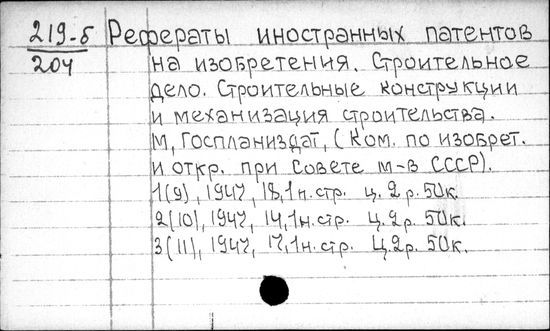 219-б Рефераты иностранных патентов
204 на изобретения. Строительное
дело. Строительные конструкции
и механизация строительства.
М, Госпланиздат, (Ком. по изобрет.
и откр. при Совете м-в СССР).
1(9), 1947, 18,1н.стр. ц. 2р. 50к.
2(10), 1947, 14,1н.стр. ц. 2р. 50к.
3(11), 1947, 17,1н.стр. ц. 2р. 50к.